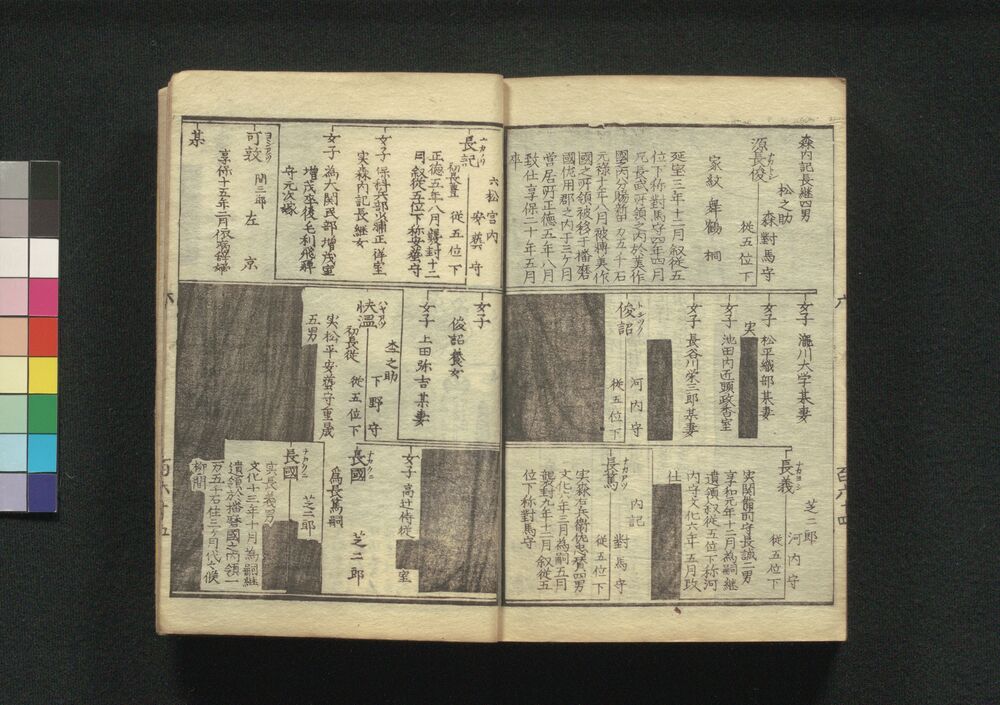 森内記長継四男
松之助
源長俊
ナカトシ
森對馬守
従五位下
家紋 舞鶴 桐
延宝三年十二月叙従五
位下称對馬守四年四月
兄長武所領之内於美作
國内分賜新田一万五千石
元禄十年八月被轉美作
國之所領被移于播磨
國佐用郡之内于三ヶ月
営居所正徳五年八月
致仕享保二十年五月
卒
六松 宮内
長記
安藝守
初長豊 従五位下
正徳五年八月襲封十二
月叙従五位下称安藝守
女子 保科兵部少浦正祥室
実森内記長継女
女子 為大関民部増茂室
増茂卒後毛利飛騨
守元次嫁
可敦
関三郎 左京
享保十五年二月依病帰
某
女子 瀧川大学某妻
女子 松平織部某妻
実
女子 池田内近頭政香室
女子 長谷川栄三郎某妻
俊韶
河内守
従五位下
女子
俊韶養女
女子 上田弥吉某妻
杢之助
快温
ハヤアツ
下野守
初長従 従五位下
実松平安藝守重晟
五男
芝二郎
長義
ナカヨシ
河内守
従五位下
実関備前守長誠二男
享和元年十二月為嗣継
遺領叙従五位下称河
内守文化六年十五月致
仕
長篤
ナカアツ
内記
對馬守
従五位下
実森右兵衛佐忠賛四男
文化六年三月為嗣五月
襲封九年十二月叙従五
位下称對馬守
女子 高辻侍従
室
長國
ナカクニ
芝二郎
為長篤嗣
長國
ナカクニ
芝三郎
実長義男
文化十三年十月為嗣継
遺領於播磨國之内領一
万五千石住三ヶ月代々候
柳間
百六十四
百六十五